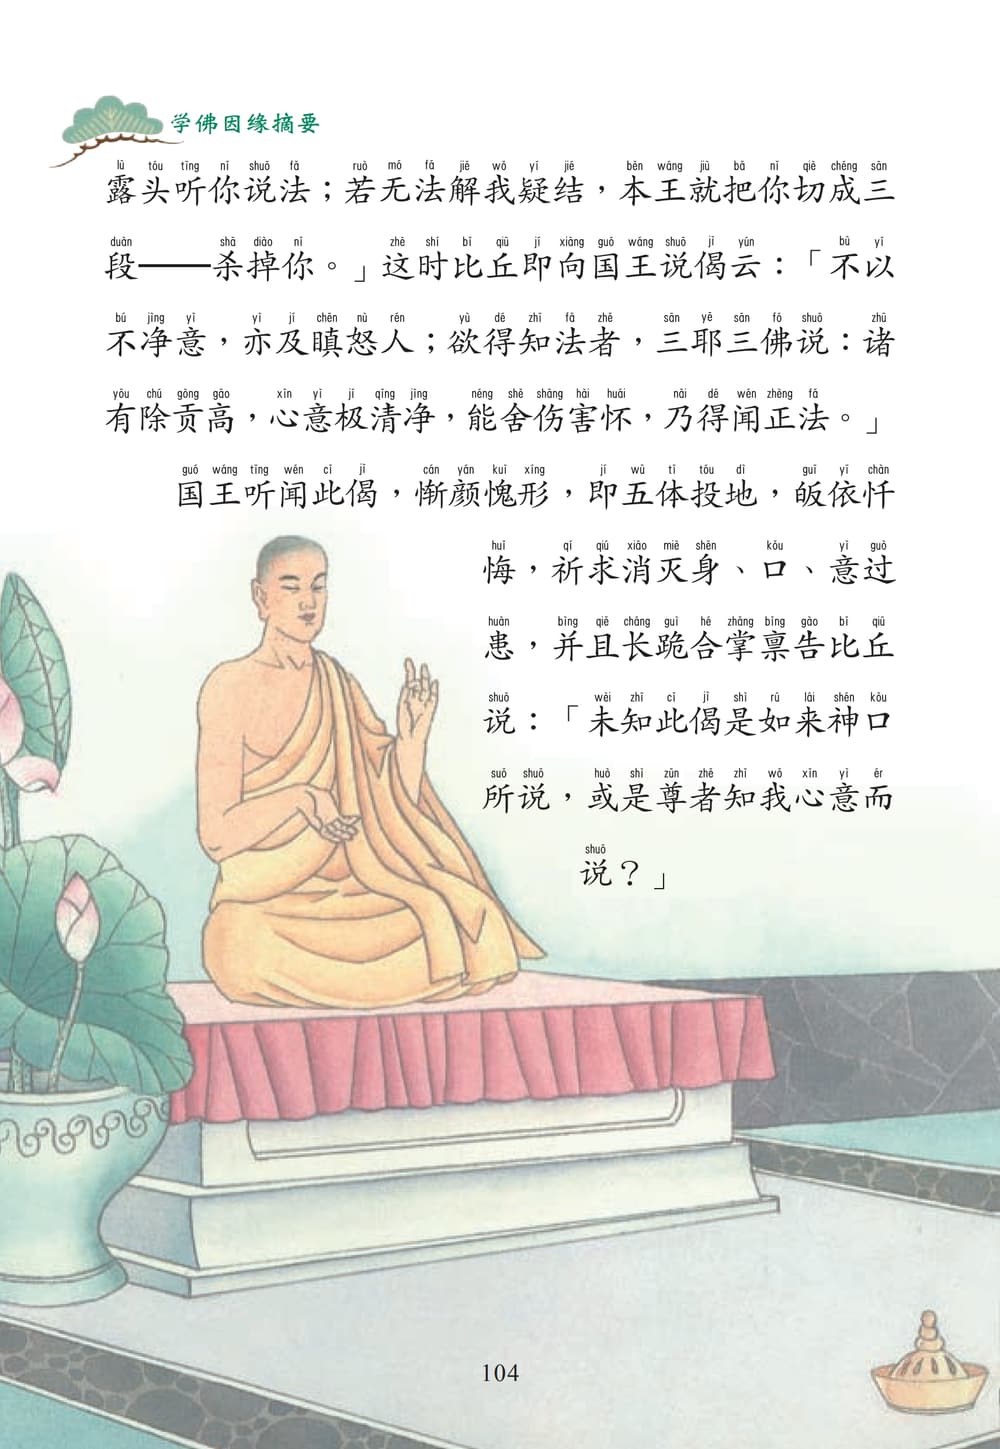 学佛因缘摘要
lù tóu tīng nǐ shuō fǎ ruò mó fǎ jiě wǒ yí jié běn wáng jiù bǎ nǐ qiē chéng sān
露头听你说法；若无法解我疑结，本王就把你切成三
duàn shā diào nǐ zhè shí bǐ qiū jí xiàng guó wáng shuō jì yún bù yǐ
段——杀掉你。」这时比丘即向国王说偈云：「不以
bú jìng yì yì jí chēn nù rén yù dé zhī fǎ zhě sān yē sān fó shuō zhū
不净意，亦及瞋怒人；欲得知法者，三耶三佛说：诸
yǒu chú gòng gāo xīn yì jí qīng jìng néng shě shāng hài huái nǎi dé wén zhèng fǎ
有除贡高，心意极清净，能舍伤害怀，乃得闻正法。」
guó wáng tīng wén cǐ jì cán yán kuì xíng jí wǔ tǐ tóu dì guī yī chàn
国王听闻此偈，惭颜愧形，即五体投地，皈依忏
huǐ qí qiú xiāo miè shēn kǒu yì guò
悔，祈求消灭身、口、意过
huàn bìng qiě cháng guì hé zhǎng bǐng gào bǐ qiū
患，并且长跪合掌禀告比丘
shuō wèi zhī cǐ jì shì rú lái shén kǒu
说：「未知此偈是如来神口
suǒ shuō huò shì zūn zhě zhī wǒ xīn yì ér
所说，或是尊者知我心意而
shuō
说？」
104